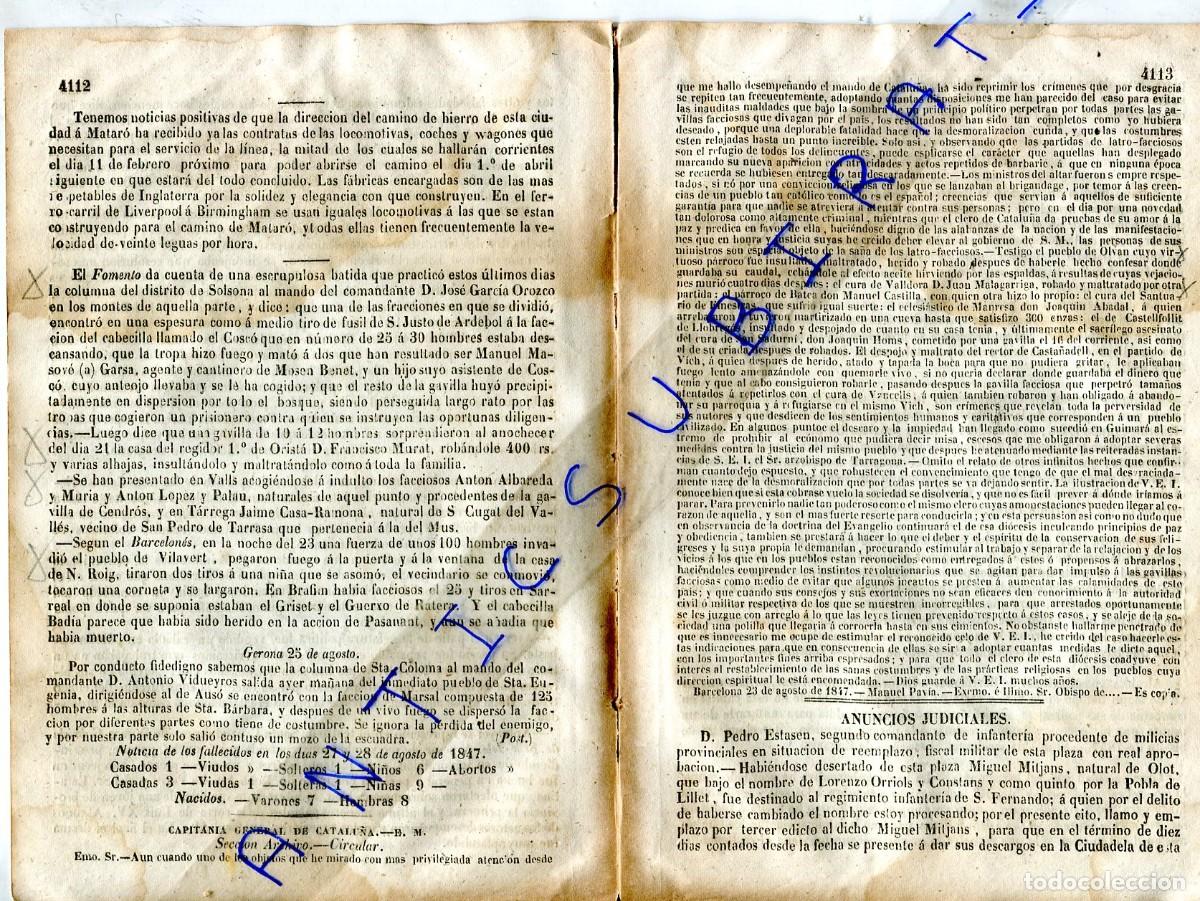 4112
Tenemos noticias positivas de que la direccion del camino de hierro de esta ciu-
dad á Mataró ha recibido ya las contratas de las locomotivas, coches y wagones que
necesitan para el servicio de la línea, la mitad de los cuales se hallarán corrientes
el dia 11 de febrero próximo para poder abrirse el camino el dia 1.º de abril
siguiente en que estará del todo concluido. Las fábricas encargadas son de las mas
respetables de Inglaterra por la solidez y elegancia con que construyen. En el fer-
ro-carril de Liverpool á Birmingham se usan iguales locomotivas á las que se estan
construyendo para el camino de Mataró, y todas ellas tienen frecuentemente la ve-
locidad de veinte leguas por hora.
El Fomento da cuenta de una escrupulosa batida que practicó estos últimos dias
la columna del distrito de Solsona al mando del comandante D. José García Orozco
en los montes de aquella parte, y dice: que una de las fracciones en que se dividió,
encontró en una espesura como á medio tiro de fusil de S. Justo de Ardebol á la fac-
cion del cabecilla llamado el Coscó que en número de 25 á 30 hombres estaba des-
cansando, que la tropa hizo fuego y mató á dos que han resultado ser Manuel Ma-
sové (a) Garsa, agente y cantinero de Mosen Benet, y un hijo suyo asistente de Cos-
có, cuyo anteojo llevaba y se le ha cogido; y que el resto de la gavilla huyó precipi-
tadamente en dispersion por todo el bosque, siendo perseguida largo rato por las
tropas que cogieron un prisionero contra quien se instruyen las oportunas diligen-
cias.—Luego dice que una gavilla de 10 á 12 hombres sorprendieron al anochecer
del dia 21 la casa del regidor 1.º de Oristá D. Francisco Murat, robándole 400 rs.
y varias alhajas, insultándolo y maltratándolo como á toda la familia.
—Se han presentado en Valls acogiéndose á indulto los facciosos Anton Albareda
y Muria y Anton Lopez y Palau, naturales de aquel punto y procedentes de la ga-
villa de Cendrós, y en Tárrega Jaime Casa-Ramona, natural de S Cugat del Va-
llés, vecino de San Pedro de Tarrasa que pertenecia á la del Mus.
—Segun el Barcelonés, en la noche del 23 una fuerza de unos 100 hombres inva-
dió el pueblo de Vilavert, pegaron fuego á la puerta y á la ventana de la casa
de N. Roig, tiraron dos tiros á una niña que se asomó, el vecindario se conmovió,
tocaron una corneta y se largaron. En Brafim habia facciosos el 25 y tiros en Sar-
real en donde se suponia estaban el Griset y el Guerxo de Ratera. Y el cabecilla
Badía parece que habia sido herido en la accion de Pasanant, y aun se añadia que
habia muerto.
Gerona 25 de agosto.
Por conducto fidedigno sabemos que la columna de Sta. Coloma al mando del co-
mandante D. Antonio Vidueyros salida ayer mañana del inmediato pueblo de Sta. Eu-
genia, dirigiéndose al de Ausó se encontró con la faccion de Marsal compuesta de 125
hombres á las alturas de Sta. Bárbara, y despues de un vivo fuego se dispersó la fac-
cion por diferentes partes como tiene de costumbre. Se ignora la pérdida del enemigo,
y por nuestra parte solo salió contuso un mozo de la escuadra. (Post.)
Noticia de los fallecidos en los dias 27 y 28 de agosto de 1847.
Casados 1 —Viudos » —Solteros 1 —Niños 6 —Abortos »
Casadas 3 —Viudas 1 —Solteras 1 —Niñas 9 —
Nacidos. —Varones 7 —Hembras 8
CAPITANIA GENERAL DE CATALUÑA.—E. M.
Seccion Archivo.—Circular.
Emo. Sr.—Aun cuando uno de los objetos que he mirado con mas privilegiada atención desde
4113
que me hallo desempeñando el mando de Cataluña, ha sido reprimir los crímenes que por desgracia
se repiten tan frecuentemente, adoptando cuantas disposiciones me han parecido del caso para evitar
las inauditas maldades que bajo la sombra de un principio político perpetran por todas partes las ga-
villas facciosas que divagan por el pais, los resultados no han sido tan completos como yo hubiera
deseado, porque una deplorable fatalidad hace que la desmoralizacion cunda, y que las costumbres
esten relajadas hasta un punto increible. Solo asi, y observando que las partidas de latro-facciosos
son el refugio de todos los delincuentes, puede esplicarse el carácter que aquellas han desplegado
marcando su nueva aparicion con atrocidades y actos repetidos de barbarie, á que en ninguna época
se recuerda se hubiesen entregado tan descaradamente.—Los ministros del altar fueron siempre respe-
tados, si ró por una conviccion religiosa en los que se lanzaban al brigandage, por temor á las creen-
cias de un pueblo tan católico como es el español; creencias que servian á aquellos de suficiente
garantía para que nadie se atreviera á atentar contra sus personas; pero en el dia por una novedad
tan dolorosa como altamente criminal, mientras que el clero de Cataluña da pruebas de su amor á la
paz y predica en favor de ella, haciéndose digno de las alabanzas de la nacion y de las manifestacio-
nes que en honra y justicia suyas he creido deber elevar al gobierno de S. M., las personas de sus
ministros son especial objeto de la saña de los latro-facciosos.—Testigo el pueblo de Olvan cuyo vir-
tuoso párroco fue insultado, maltratado, herido y robado despues de haberle hecho confesar donde
guardaba su caudal, echándole al efecto aceite hirviendo por las espaldas, á resultas de cuyas vejacio-
nes murió cuatro dias despues: el cura de Valldora D. Juan Malagarriga, robado y maltratado por otra
partida: al párroco de Hatea don Manuel Castilla, con quien otra hizo lo propio: el cura del Santua-
rio de Pinestras, que sufrió igual suerte: el eclesiástico de Manresa don Joaquin Abadal, á quien
arrebataron y tuvieron martirizado en una cueva hasta que satisfizo 300 onzas: el de Castellfullit
de Llobregós, robado y despojado de cuanto en su casa tenia, y últimamente el sacrílego asesinato
del cura de Sadurni, don Joaquin Homs, cometido por una gavilla el 16 del corriente, asi como
el de su criada despues de robarles. El despojo y maltrato del rector de Castañadell, en el partido de
Vich, á quien despues de herido, atado y tapada la boca para que no pudiera gritar, le aplicaban
fuego lento amenazándole con quemarle vivo, si no queria declarar donde guardaba el dinero que
tenia y que al cabo consiguieron robarle, pasando despues la gavilla facciosa que perpetró tamaños
atentados á repetirlos con el cura de Vancells, á quien tambien robaron y han obligado á abando-
nar su parroquia y á refugiarse en el mismo Vich, son crímenes que revelan toda la perversidad de
sus autores y que desdicen de los sentimientos humanos y caritativos que corresponden á un pueblo
civilizado. En algunos puntos el descaro y la impiedad han llegado como sucedió en Guimará al es-
tremo de prohibir al ecónomo que pudiera decir misa, escesos que me obligaron á adoptar severas
medidas contra la justicia del mismo pueblo y que despues he atenuado mediante las reiteradas instan-
cias de S. E. I. el Sr. arzobispo de Tarragona.—Omito el relato de otros infinitos hechos que confir-
man cuanto dejo espuesto, y que robustecen el conocimiento que tengo de que el mal desgraciada-
mente nace de la desmoralizacion que por todas partes se va dejando sentir. La ilustracion de V. E. I.
conoce bien que si esta cobrase vuelo la sociedad se disolveria, y que no es fácil prever á dónde iríamos á
parar. Para prevenirlo nadie tan poderoso como el mismo clero cuyas amonestaciones pueden llegar al co-
razon de aquella, y son el mas fuerte resorte para conducirla; y en esta persuasion asi como no dudo que
en observancia de la doctrina del Evangelio continuará el de esa diócesis inculcando principios de paz
y obediencia, tambien se prestará á hacer lo que el deber y el espíritu de la conservacion de sus feli-
greses y la suya propia le demandan, procurando estimular al trabajo y separar de la relajacion y de los
vicios á los que en los pueblos estan reconocidos como entregados á estos ó propensos á abrazarlos,
haciéndoles comprender los instintos revolucionarios que se agitan para dar impulso á las gavillas
facciosas como medio de evitar que algunos incautos se presten á aumentar las calamidades de este
pais; y que cuando sus consejos y sus exortaciones no sean eficaces den conocimiento á la autoridad
civil ó militar respectiva de los que se muestren incorregibles, para que arrestados oportunamente
se les juzgue con arreglo á lo que las leyes tienen prevenido respecto á estos casos, y se aleje de la so-
ciedad una polilla que llegaria á corroerla hasta en sus cimientos. No obstante hallarme penetrado de
que es innecesario me ocupe de estimular el reconocido celo de V. E. I., he creido del caso hacerle es-
tas indicaciones para que en consecuencia de ellas se sirva adoptar cuantas medidas le dicte aquel,
con los importantes fines arriba espresados; y para que todo el clero de esta diócesis coadyuve con
interes al restablecimiento de las sanas costumbres y de las prácticas religiosas en los pueblos cuya
direccion espiritual le está encomendada.—Dios guarde á V. E. I. muchos años.
Barcelona 23 de agosto de 1847.—Manuel Pavía.—Exemo. é Ilimo. Sr. Obispo de....—Es copia.
ANUNCIOS JUDICIALES.
D. Pedro Estasen, segundo comandante de infantería procedente de milicias
provinciales en situacion de reemplazo, fiscal militar de esta plaza con real apro-
bacion.—Habiéndose desertado de esta plaza Miguel Mitjans, natural de Olot,
que bajo el nombre de Lorenzo Orriols y Constans y como quinto por la Pobla de
Lillet, fue destinado al regimiento infantería de S. Fernando; á quien por el delito
de haberse cambiado el nombre estoy procesando; por el presente cito, llamo y em-
plazo por tercer edicto al dicho Miguel Mitjans, para que en el término de diez
dias contados desde la fecha se presente á dar sus descargos en la Ciudadela de esta
ANTICSUBIRATS
todocoleccion